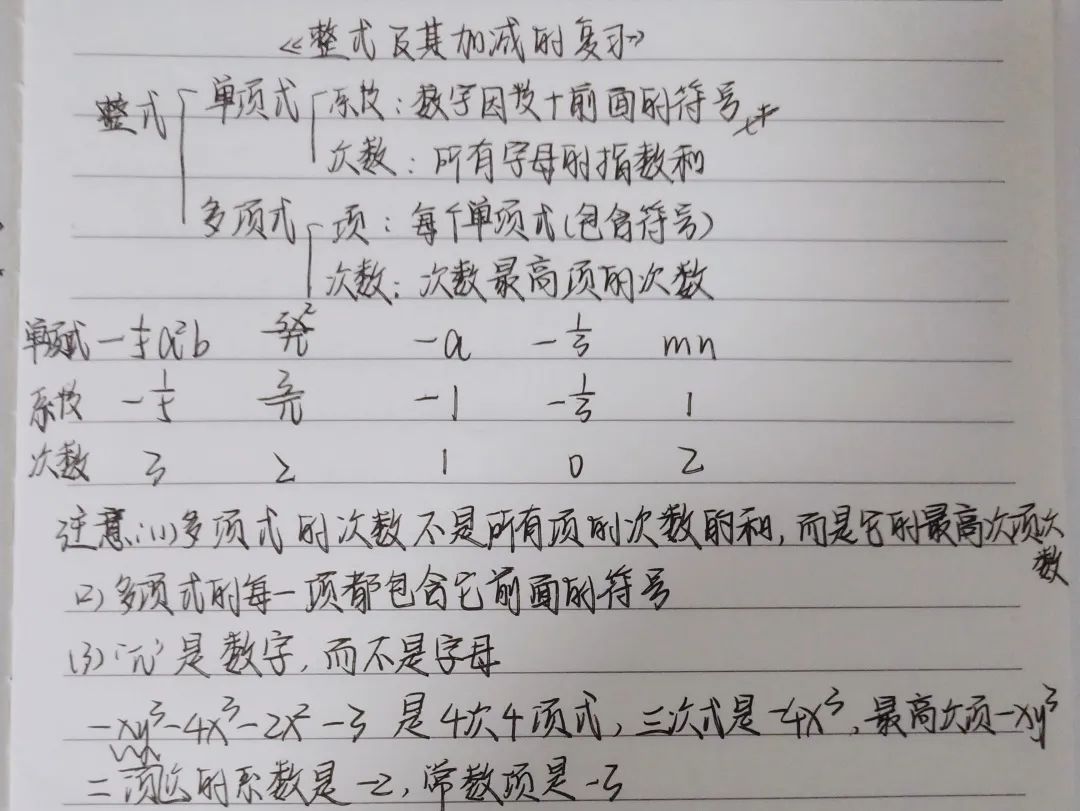 《整式及其加减的复习》
整式 单项式 系数：数字因数+前面的符号
次数：所有字母的指数和
多项式 项：每个单项式(包含符号)
次数：次数最高项的次数
单项式 -1/5a²b 3x²/π -a -1/3 mn
系数 -1/5 3/π -1 -1/3 1
次数 3 2 1 0 2
注意：(1)多项式的次数不是所有项的次数的和，而是它的最高次项次数
(2)多项式的每一项都包含它前面的符号
(3)“π”是数字，而不是字母
-xy³-4x³-2x²-3 是4次4项式，三次式是-4x³，最高次项-xy³
二次的系数是-2，常数项是-3